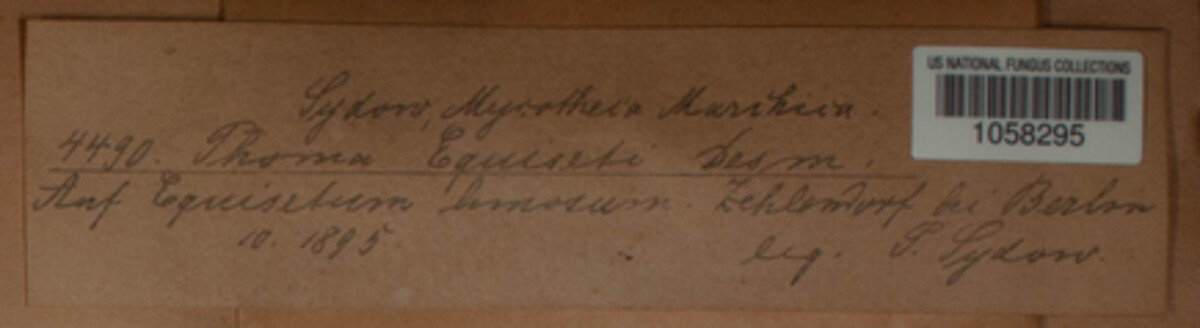 Sydow, Mycotheca Marchica.
4490. Phoma Equiseti Desm.
Auf Equisetum limosum. Zehlendorf bei Berlin
10. 1895 leg. P. Sydow.
US NATIONAL FUNGUS COLLECTIONS
1058295